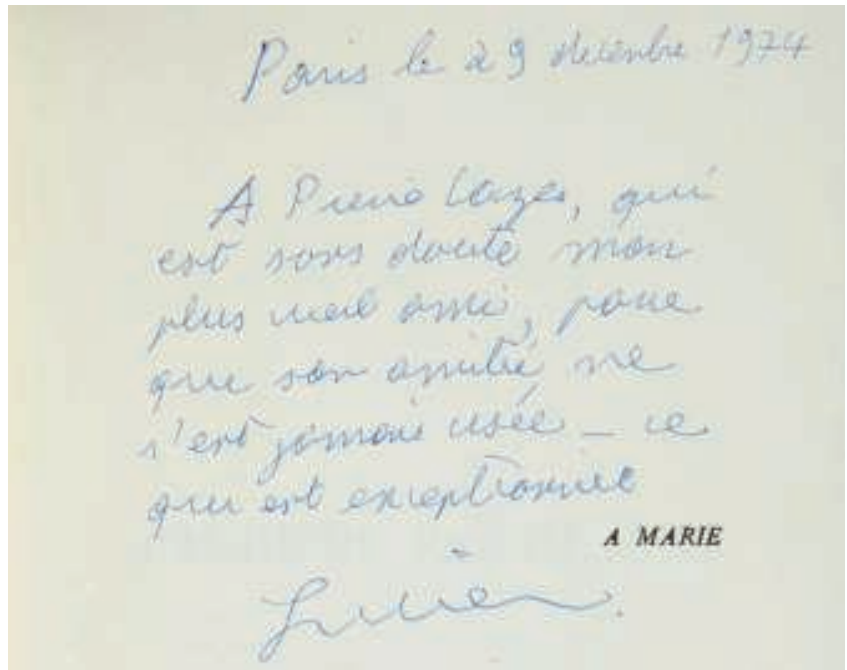 Paris le 29 décembre 1974
A Pierre Lazes, qui
est sans doute mon
plus vieil ami, parce
que son amitié ne
s'est jamais usée _ ce
qui est exceptionnel
A MARIE
Lucien.